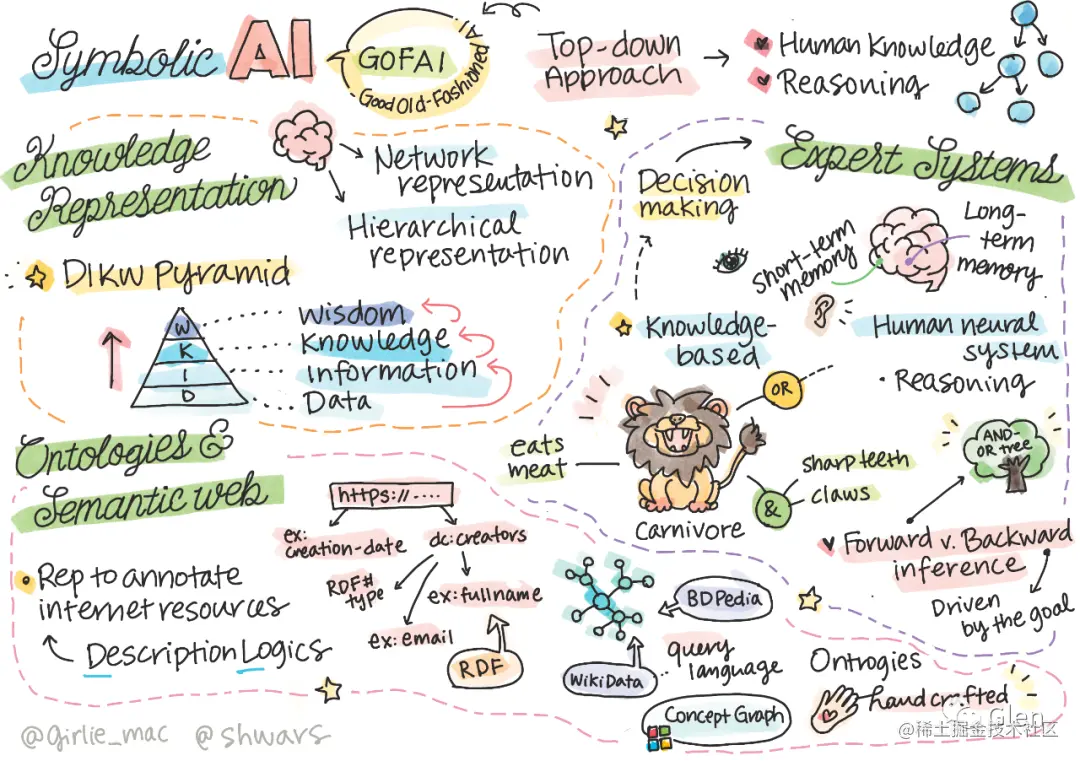 Symbolic AI
GOFAI
Good Old-Fashioned AI
Top-down
Approach
Human Knowledge
Reasoning
Knowledge
Representation
Network
representation
Hierarchical
representation
DIKW Pyramid
W
K
I
D
Wisdom
Knowledge
Information
Data
Expert Systems
Decision
making
short-term
memory
Long-
term
memory
Knowledge-
based
Human neural
system
• Reasoning
OR
eats
meat
sharp teeth
&
claws
Carnivore
AND-
OR tree
Forward v. Backward
inference
Driven
by the goal
Ontologies &
Semantic web
Rep to annotate
internet resources
Description Logics
https:// ....
ex:
creation-date
dc:creators
RDF#
type
ex:fullname
ex:email
RDF
BDPedia
WikiData
query
language
Concept Graph
Ontrogies
hand crafted
@girlie_mac @shwars
Glen
@稀土掘金技术社区